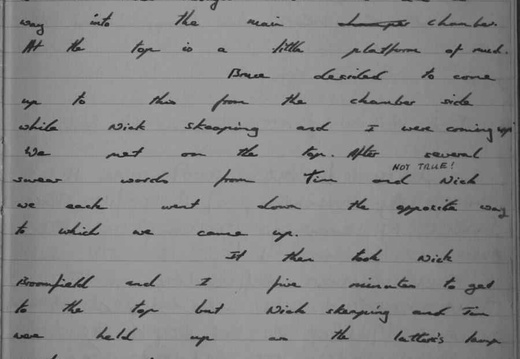 way into the main chamber.
At the top is a little platform of mud.
Bruce decided to come
up to this from the chamber side
while Nick Skeeping and I were coming up
We met on the top. After several
NOT TRUE!
swear words from Tim and Nick
we each went down the opposite way
to which we came up.
It then took Nick
Broomfield and I five minutes to get
to the top but Nick Skeeping and Tim
were held up as the latter's lamp